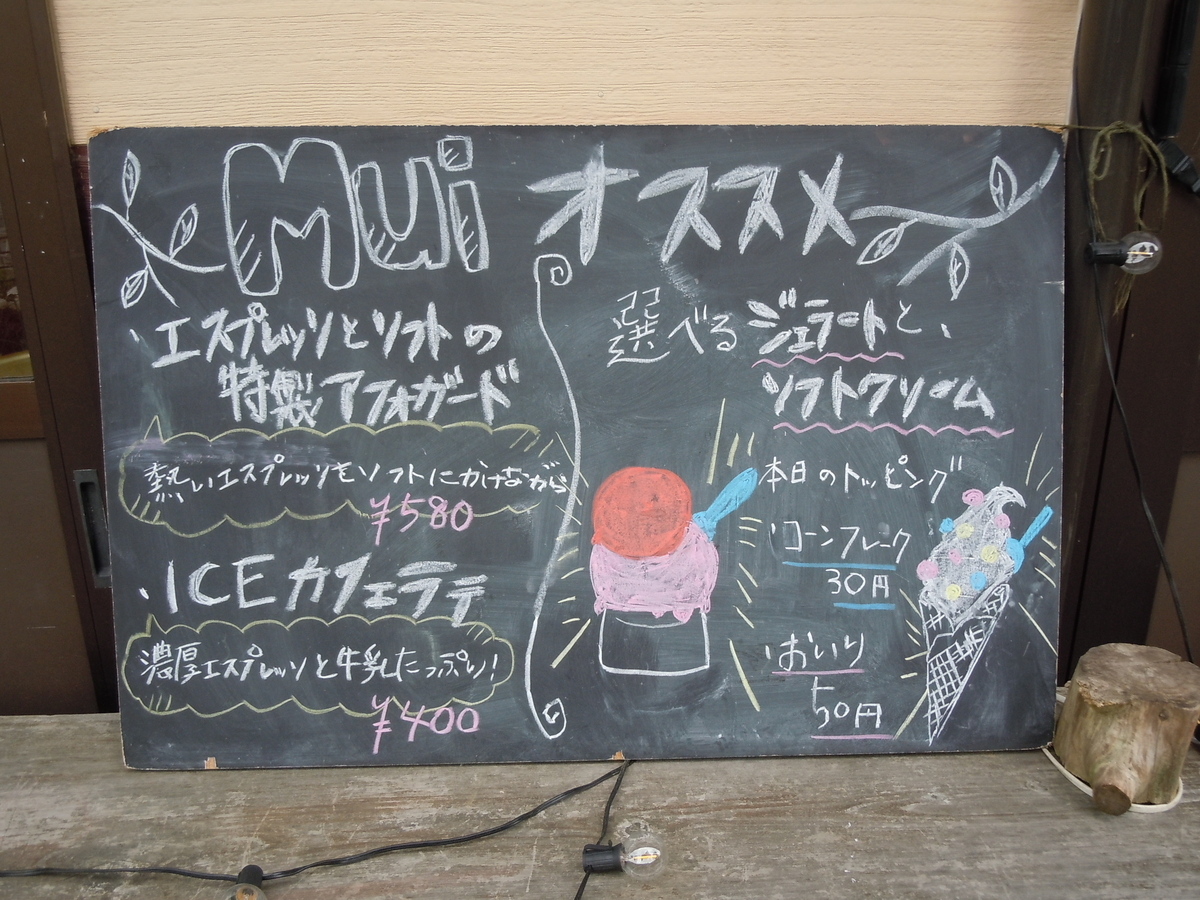 Mui オススメ
・エスプレッソとソフトの
特製アフォガード
熱いエスプレッソをソフトにかけながら
¥580
・ICEカフェラテ
濃厚エスプレッソと牛乳たっぷり!
¥400
選べるジェラートと、
ソフトクリーム
本日のトッピング
・コーンフレーク
30円
・おいり
50円